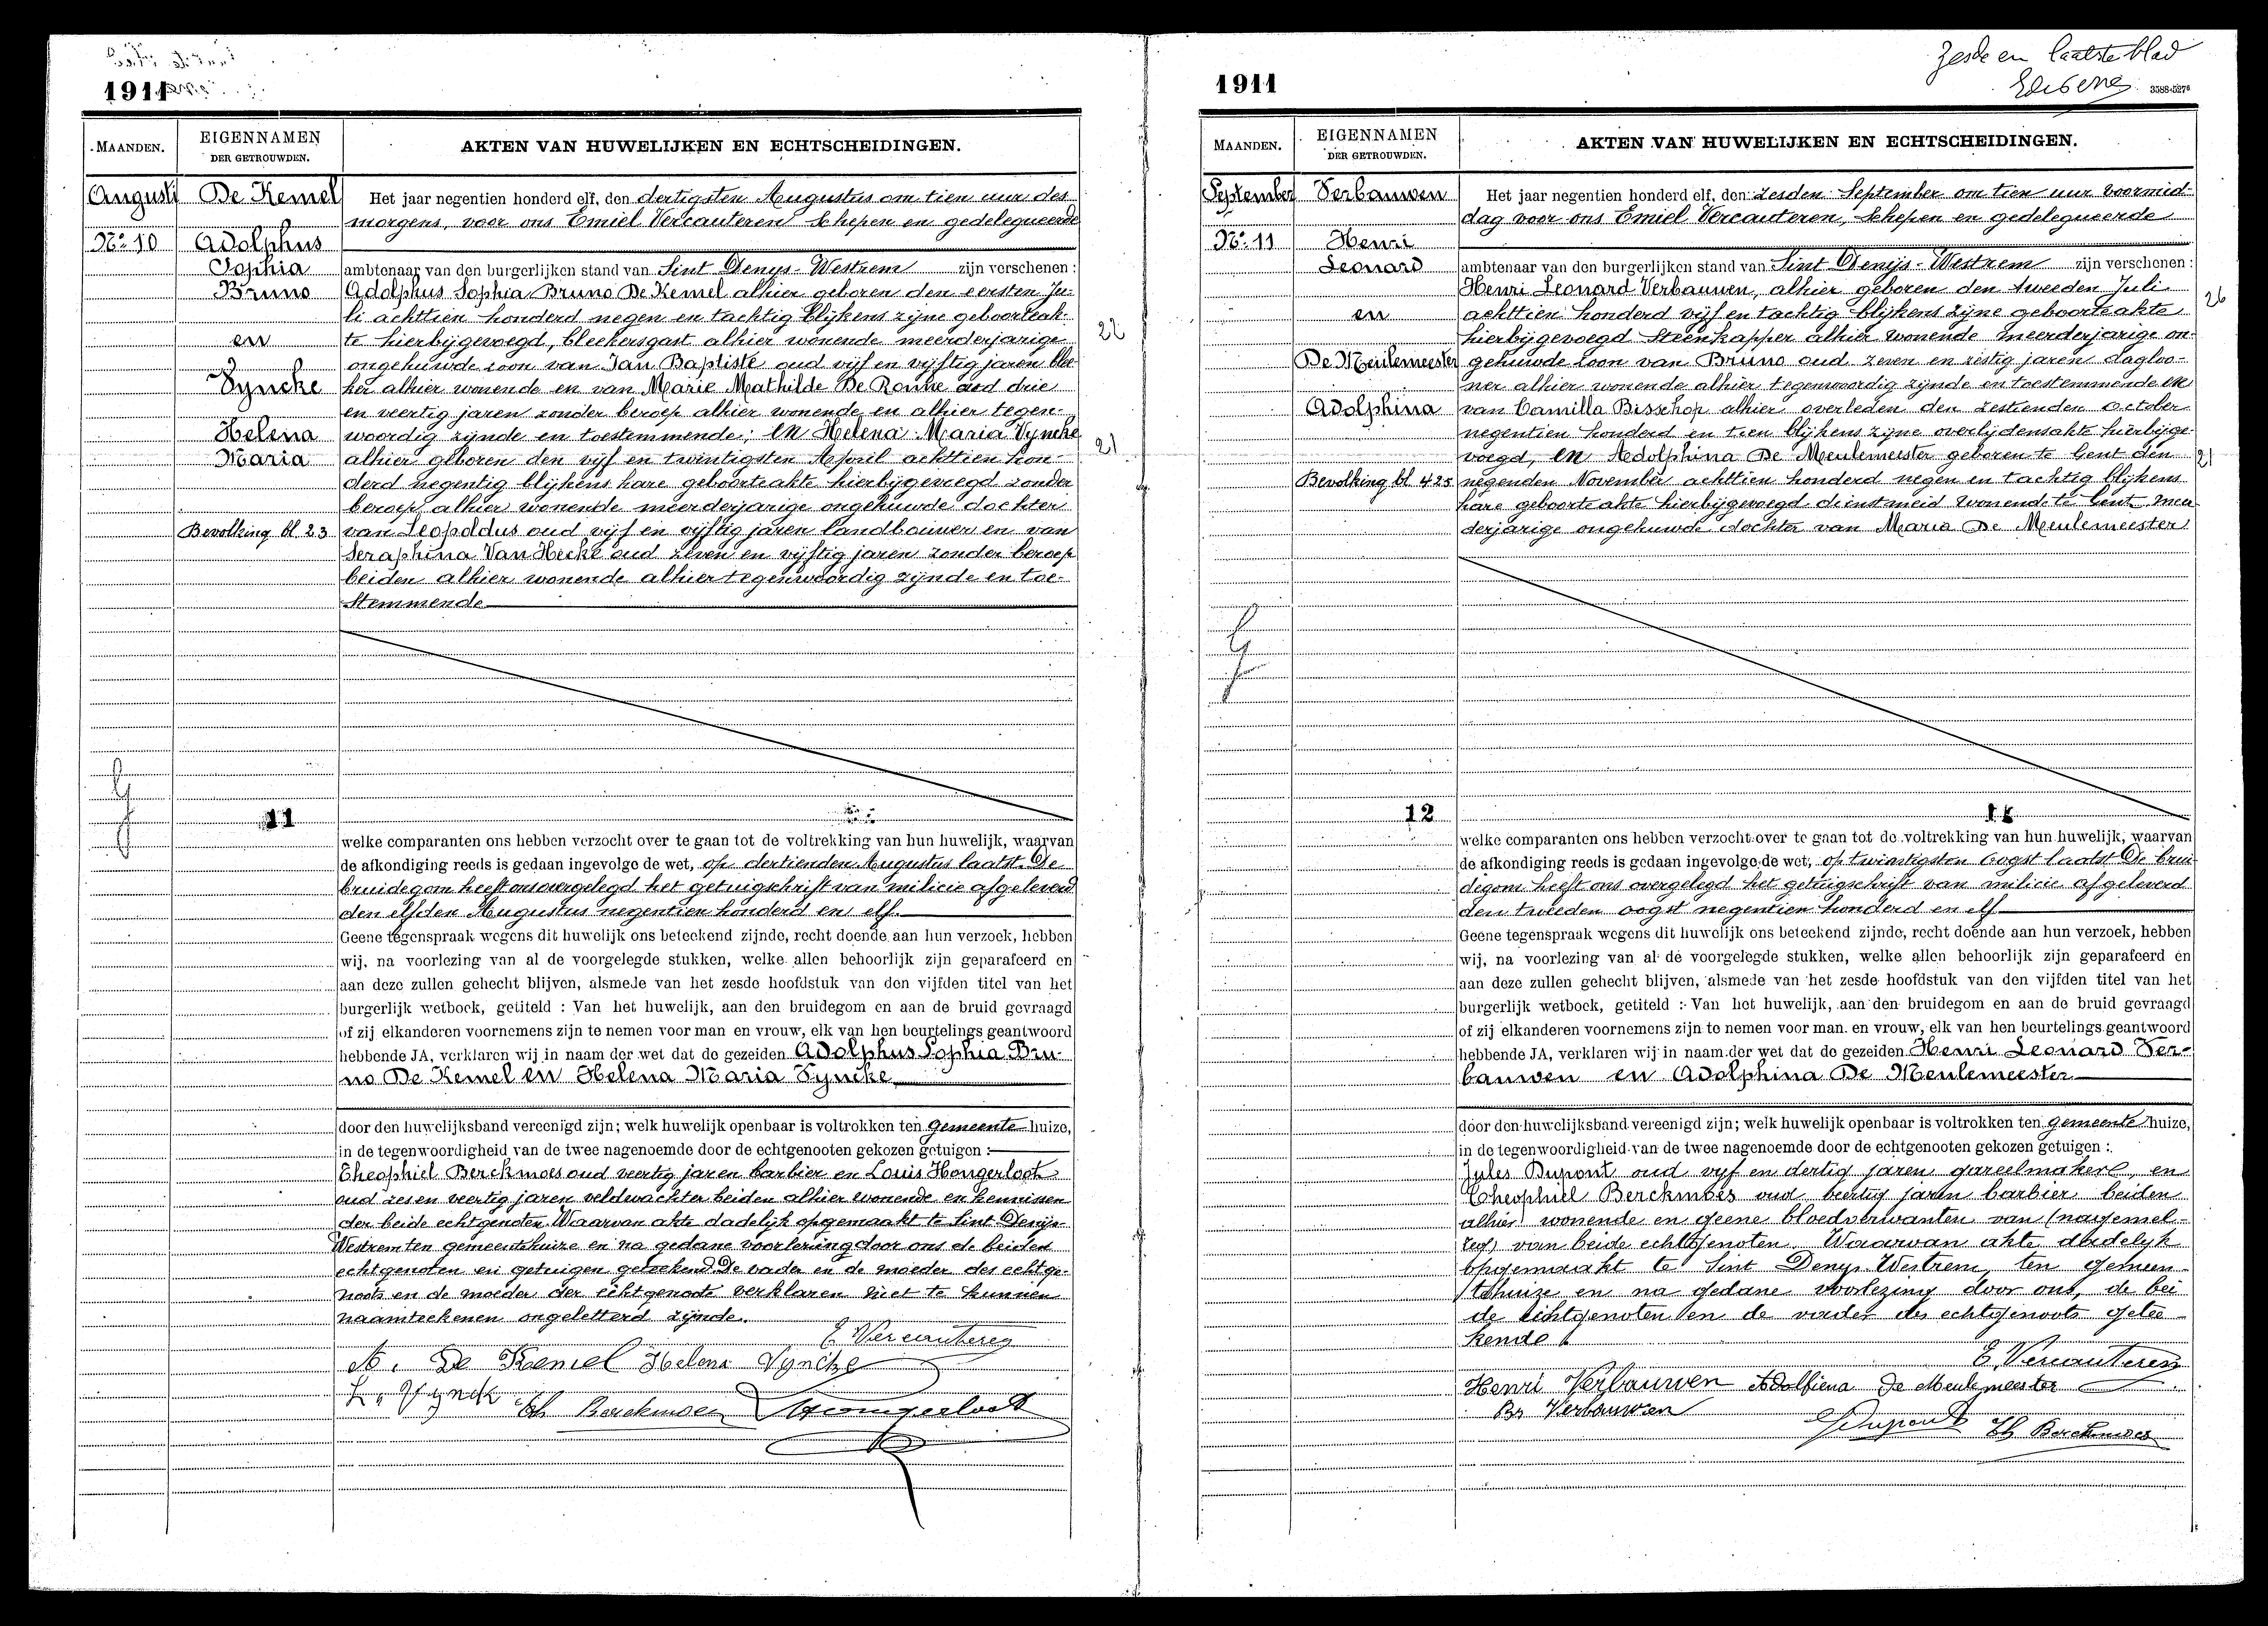 1911
MAANDEN.
EIGENNAMEN
DER GETROUWDEN.
AKTEN VAN HUWELIJKEN EN ECHTSCHEIDINGEN.
Augusti
No. 10
De Kemel
Adolphus
Sophia
Bruno
en
Vyncke
Helena
Maria
Bevolking bl 23
11
Het jaar negentien honderd elf, den dertigsten Augustus om tien uur des
morgens, voor ons Emiel Vercauteren schepen en gedelegueerde
ambtenaar van den burgerlijken stand van Sint Denys-Westrem zijn verschenen:
Adolphus Sophia Bruno De Kemel alhier geboren den eersten Ju-
li achttien honderd negen en tachtig blijkens zijne geboorteak-
te hierbijgevoegd, bleekersgast alhier wonende meerderjarige
ongehuwde zoon van Jan Baptiste oud vijf en vijftig jaren blee-
ker alhier wonende en van Marie Mathilde De Ronne oud drie
en veertig jaren zonder beroep alhier wonende en alhier tegen-
woordig zijnde en toestemmende; en Helena Maria Vyncke
alhier geboren den vijf en twintigsten April achttien hon-
derd negentig blijkens hare geboorteakte hierbijgevoegd zonder
beroep alhier wonende meerderjarige ongehuwde dochter
van Leopoldus oud vijf en vijftig jaren landbouwer en van
Seraphina Van Hecke oud zeven en vijftig jaren zonder beroep
beiden alhier wonende alhier tegenwoordig zijnde en toe-
stemmende
22
21
welke comparanten ons hebben verzocht over te gaan tot de voltrekking van hun huwelijk, waarvan
de afkondiging reeds is gedaan ingevolge de wet, op dertienden Augustus laatst. De
bruidegom heeft ons overgelegd het getuigschrift van milicie afgeleverd
den elfden Augustus negentien honderd en elf.
Geene tegenspraak wegens dit huwelijk ons beteekend zijnde, recht doende aan hun verzoek, hebben
wij, na voorlezing van al de voorgelegde stukken, welke allen behoorlijk zijn geparafeerd en
aan deze zullen gehecht blijven, alsmede van het zesde hoofdstuk van den vijfden titel van het
burgerlijk wetboek, getiteld : Van het huwelijk, aan den bruidegom en aan de bruid gevraagd
of zij elkanderen voornemens zijn te nemen voor man en vrouw, elk van hen beurtelings geantwoord
hebbende JA, verklaren wij in naam der wet dat de gezeiden Adolphus Sophia Bru-
no De Kemel en Helena Maria Vyncke
door den huwelijksband vereenigd zijn; welk huwelijk openbaar is voltrokken ten gemeente huize,
in de tegenwoordigheid van de twee nagenoemde door de echtgenooten gekozen getuigen :
Theophiel Berckmoes oud veertig jaren barbier en Louis Hongerloot
oud zes en veertig jaren veldwachter beiden alhier wonende en kennissen
der beide echtgenoten. Waarvan akte dadelijk opgemaakt te Sint Denijs-
Westrem ten gemeentehuize en na gedane voorlezing door ons de beiden
echtgenoten en getuigen geteekend. De vader en de moeder des echtge-
noots en de moeder der echtgenoote verklaren niet te kunnen
naamteekenen ongeletterd zijnde.
E. Vercauteren
A. De Kemel Helena Vyncke
L. Vynck Th Berckmoes Hongerloot
Zesde en laatste blad
1911
3588-527
MAANDEN.
EIGENNAMEN
DER GETROUWDEN.
AKTEN VAN HUWELIJKEN EN ECHTSCHEIDINGEN.
September
No. 11
Verbauwen
Henri
Leonard
en
De Meulemeester
Adolphina
Bevolking bl 425
12
Het jaar negentien honderd elf, den zesden September om tien uur voormid-
dag voor ons Emiel Vercauteren, schepen en gedelegueerde
ambtenaar van den burgerlijken stand van Sint Denijs-Westrem zijn verschenen:
Henri Leonard Verbauwen, alhier geboren den tweeden Juli
achttien honderd vijf en tachtig blijkens zijne geboorteakte
hierbijgevoegd steenkapper alhier wonende meerderjarige on-
gehuwde zoon van Bruno oud zeven en zestig jaren dagloo-
ner alhier wonende alhier tegenwoordig zijnde en toestemmende en
van Camilla Bisschop alhier overleden den zestienden October
negentien honderd en tien blijkens zijne overlijdensakte hierbijge-
voegd, en Adolphina De Meulemeester geboren te Gent den
negenden November achttien honderd negen en tachtig blijkens
hare geboorteakte hierbijgevoegd dienstmeid wonende te Gent mee-
derjarige ongehuwde dochter van Maria De Meulemeester
26
21
welke comparanten ons hebben verzocht over te gaan tot de voltrekking van hun huwelijk, waarvan
de afkondiging reeds is gedaan ingevolge de wet, op twintigsten oogst laatst De brui-
degom heeft ons overgelegd het getuigschrift van milicie afgeleverd
den tweeden oogst negentien honderd en elf
Geene tegenspraak wegens dit huwelijk ons beteekend zijnde, recht doende aan hun verzoek, hebben
wij, na voorlezing van al de voorgelegde stukken, welke allen behoorlijk zijn geparafeerd en
aan deze zullen gehecht blijven, alsmede van het zesde hoofdstuk van den vijfden titel van het
burgerlijk wetboek, getiteld : Van het huwelijk, aan den bruidegom en aan de bruid gevraagd
of zij elkanderen voornemens zijn te nemen voor man en vrouw, elk van hen beurtelings geantwoord
hebbende JA, verklaren wij in naam der wet dat de gezeiden Henri Leonard Ver-
bauwen en Adolphina De Meulemeester
door den huwelijksband vereenigd zijn; welk huwelijk openbaar is voltrokken ten gemeente huize,
in de tegenwoordigheid van de twee nagenoemde door de echtgenooten gekozen getuigen :
Jules Dupont oud vijf en dertig jaren gareelmaker, en
Theophiel Berckmoes oud veertig jaren barbier beiden
alhier wonende en geene bloedverwanten van
van beide echtgenoten. Waarvan akte dadelyk
opgemaakt te Sint Denys-Westrem, ten gemeen-
tehuize en na gedane voorlezing door ons, de bei
de echtgenoten en de vader des echtgenoots getee-
kend.
E. Vercauteren
Henri Verbauwen Adolfiena De Meulemeester
Br Verbauwen
Dupont Th Berckmoes